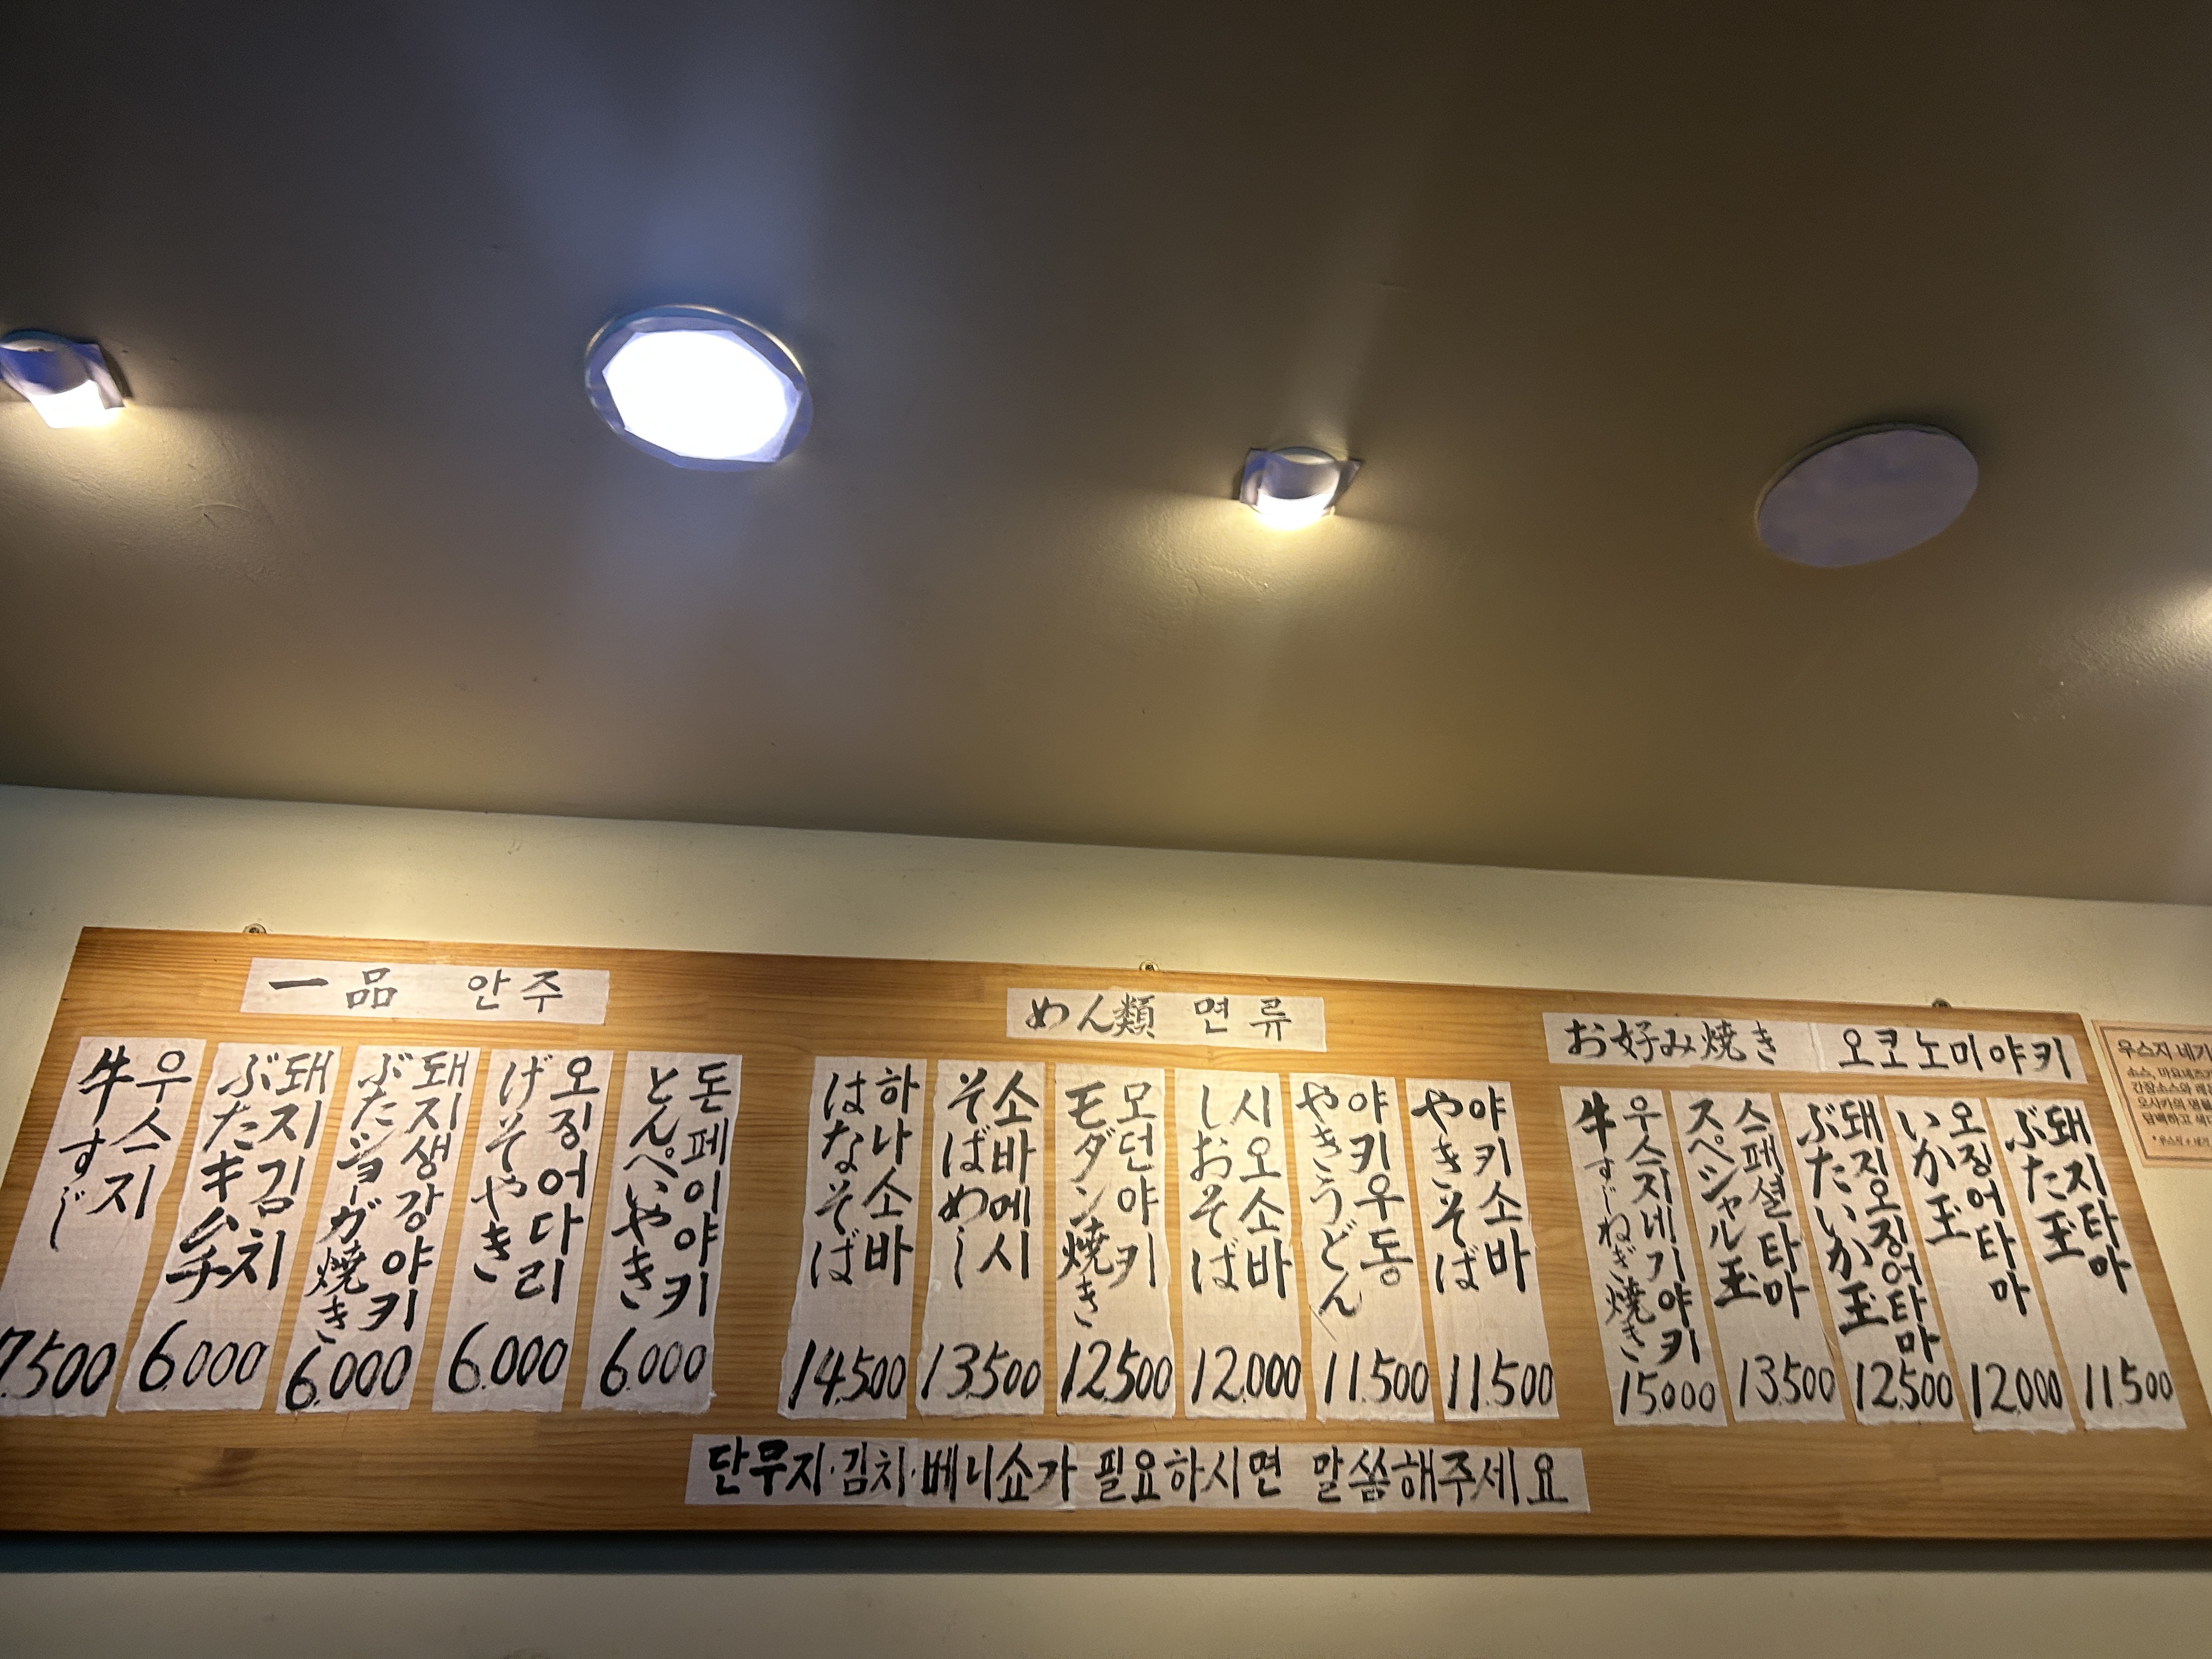 一品 안주
우스지
牛すじ
7.500
돼지김치
ぶたキムチ
6.000
돼지생강야키
ぶたジョーガ焼き
6.000
오징어다리
げそやき
6.000
돈페이야키
とんぺいやき
6.000
めん類 면류
하나소바
はなそば
14.500
소바메시
そばめし
13.500
모던야키
モダン焼き
12.500
시오소바
しおそば
12.000
야키우동
やきうどん
11.500
야키소바
やきそば
11.500
お好み焼き 오코노미야키
우스지네기야키
牛すじねぎ焼き
15.000
스페셜타마
スペシャル玉
13.500
돼지오징어타마
ぶたいか玉
12.500
오징어타마
いか玉
12.000
돼지타마
ぶた玉
11.500
단무지·김치·베니쇼가 필요하시면 말씀해주세요
우스지 네기
소스, 마요네즈
간장소스와
오사카의 명물
담백하고